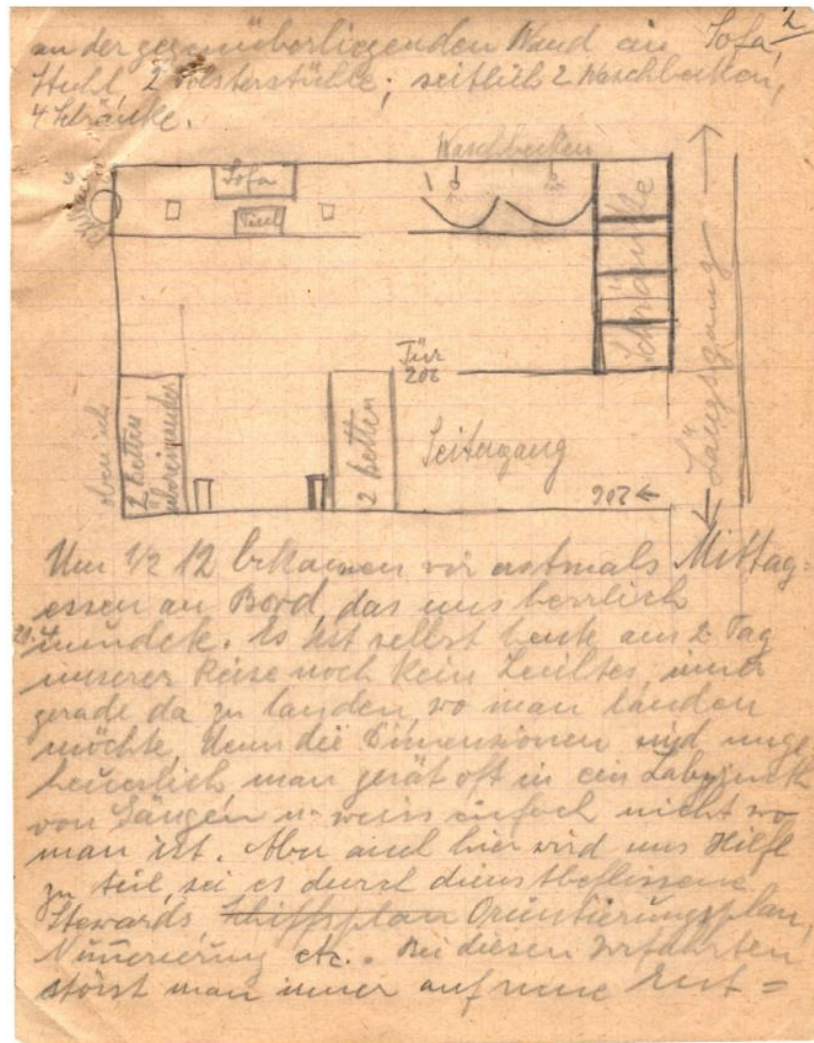 2
an der gegenüberliegenden Wand ein Sofa,
Stuhl, 2 Polsterstühle; seitlich 2 Waschbecken,
4 Schränke.
Waschbecken
Sofa
Tisch
Schränke
Längsgang
Tür
206
oben ich
2 Betten
übereinander
2 Betten
Seitengang
206 ←
Um 1/2 12 bekamen wir erstmals Mittag=
essen an Bord, das uns herrlich
mundete. Es ist selbst heute am 2. Tag
unserer Reise noch kein Leichtes, immer
gerade da zu landen, wo man landen
möchte, denn die Dimensionen sind unge
heuerlich, man gerät oft in ein Labyrinth
von Gängen u. weiss einfach nicht wo
man ist. Aber auch hier wird uns Hilfe
zu teil, sei es durch dienstbeflissene
Stewards, Schiffsplan Orientierungsplan,
Numerierung etc.. Bei diesen Irrfahrten
stösst man immer auf neue Ent=